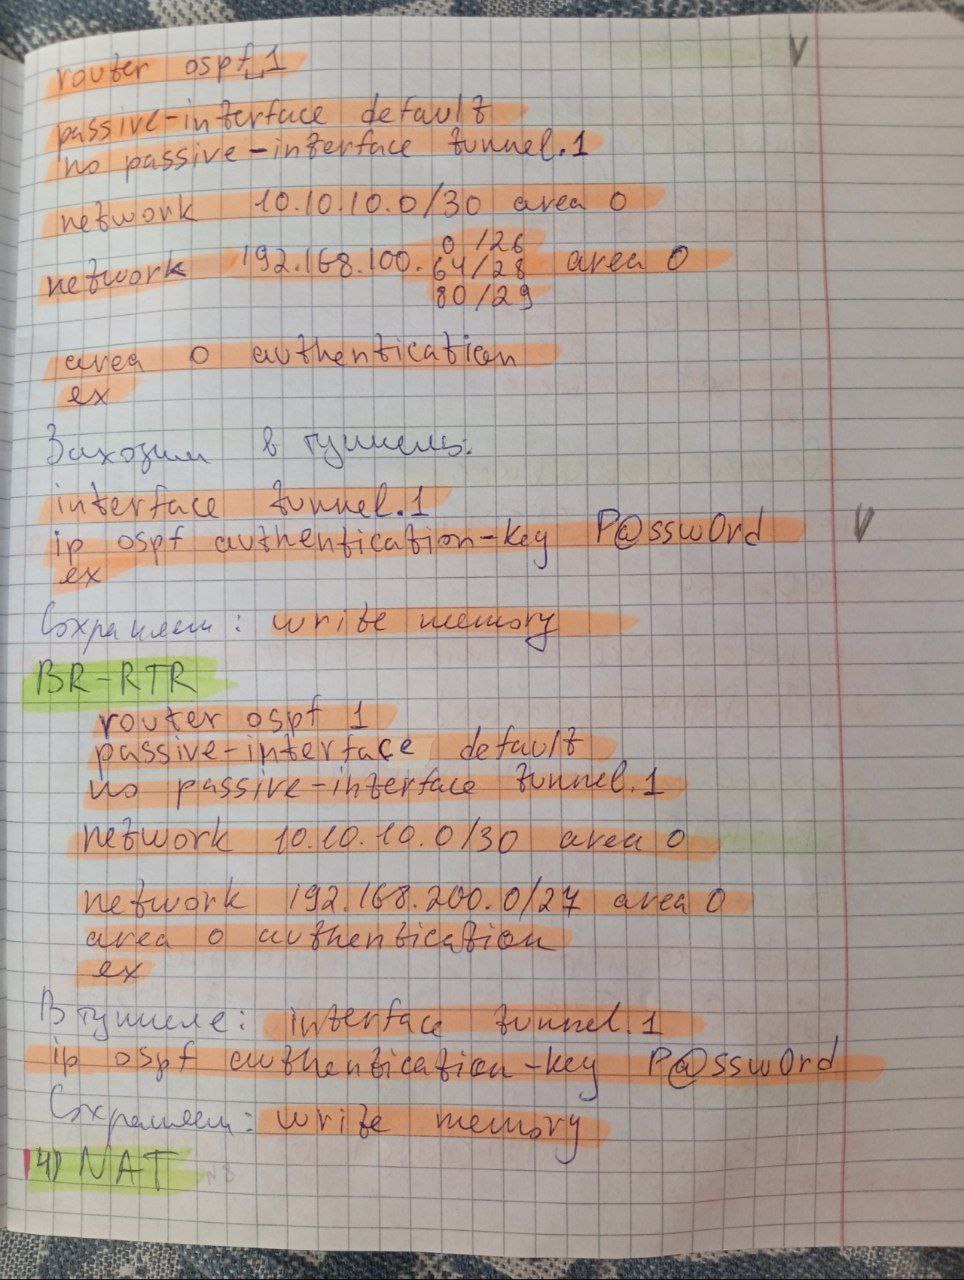 router ospf 1
passive-interface default
no passive-interface tunnel.1
network 10.10.10.0/30 area 0
0 /26
network 192.168.100. 64/28 area 0
80/29
area 0 authentication
ex
Заходим в туннель:
interface tunnel.1
ip ospf authentication-key P@ssw0rd
ex
Сохраняем: write memory
BR-RTR
router ospf 1
passive-interface default
no passive-interface tunnel.1
network 10.10.10.0/30 area 0
network 192.168.200.0/27 area 0
area 0 authentication
ex
В туннеле: interface tunnel.1
ip ospf authentication-key P@ssw0rd
Сохраняем: write memory
4) NAT